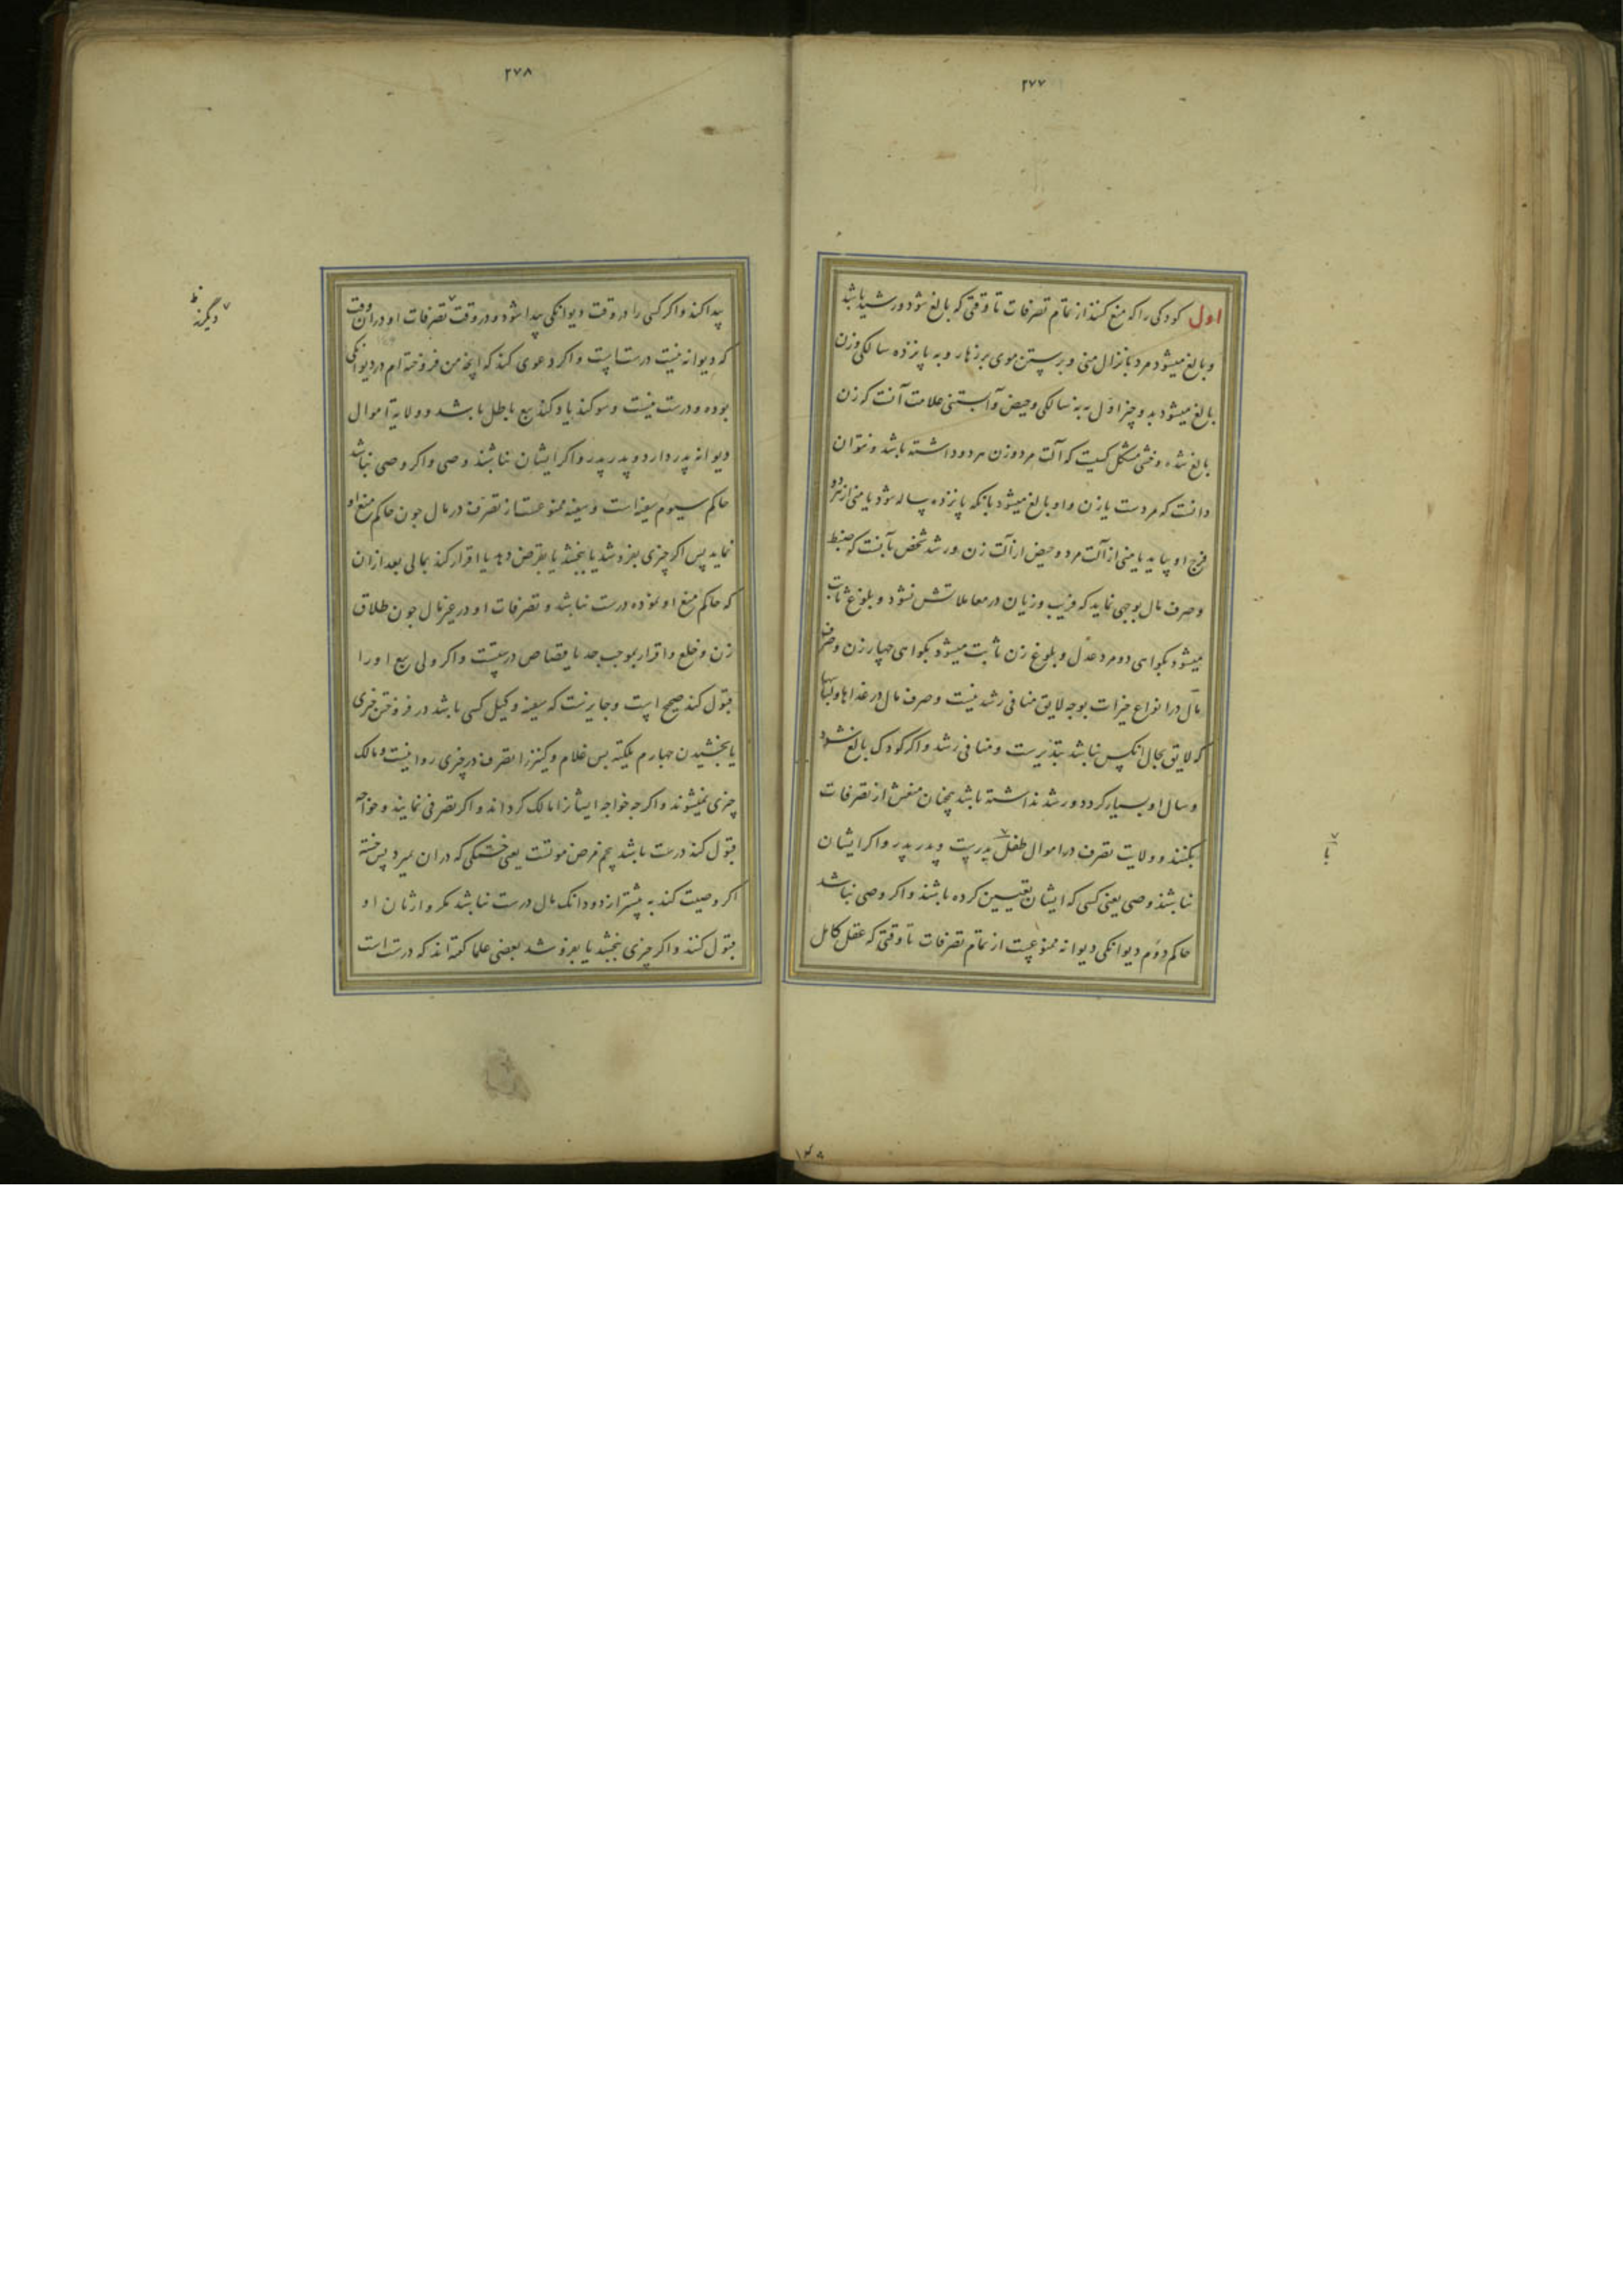 ۲۷۷
اول کودکی راکه منع کنند از تمام تصرفات تا وقتی که بالغ شود و رشید باشد
و بالغ میشود مرد بانزال منی و برستن موی بر زهار و به پانزده سالکی و زن
بالغ میشود بدو چیز اول به نه سالکی و حیض و آبستنی علامت آنست که زن
بالغ شده و خنثی مشکل کسیت که آلت مرد و زن هر دو داشته باشد و نتوان
دانست که مردست یا زن و او بالغ میشود بانکه پانزده ساله شود یا منی از هر دو
فرج او بیاید یا منی از آلت مرد و حیض از آلت زن و رشد شخص بآنست که ضبط
و صرف مال بوجهی نماید که فریب و زیان در معاملاتش نشود و بلوغ ثابت
میشود بکواهی دو مرد عدل و بلوغ زن ثابت میشود بکواهی چهار زن و صرف
مال در انواع خیرات بوجه لایق منافی رشد نیست و صرف مال در غذاها و لباسها
که لایق بحال انکس نباشد تبذیرست و منافی رشد و اکر کودک بالغ شود
و سال او بسیار کردد و رشد نداشته باشد همچنان منعش از تصرفات
بکنند و ولایت تصرف در اموال طفل پدرست و پدر پدر و اکر ایشان
نباشند وصی یعنی کسی که ایشان تعیین کرده باشند و اکر وصی نباشد
حاکم دوم دیوانکی دیوانه ممنوعست از تمام تصرفات تا وقتی که عقل کامل
با
۱۳۸
۲۷۸
پیدا کند و اکر کسی را در وقت دیوانکی پیدا شود و در وقت تصرفات او در آن وقت
که دیوانه نیست درستست و اکر دعوی کند که انچه من فروخته ام در دیوانکی
بوده و درست نیست و سوکند یاد کند بیع باطل باشد و ولایة اموال
دیوانه پدر دارد و پدر پدر و اکر ایشان نباشند وصی و اکر وصی نباشد
حاکم سیوم سفیه است و سفیه ممنوعست از تصرف در مال چون حاکم منع او
نماید پس اکر چیزی بفروشد یا ببخشد یا بقرض دهد یا اقرار کند بمالی بعد ازان
که حاکم منع او نموده درست نباشد و تصرفات او در غیر مال چون طلاق
زن و خلع و اقرار بموجب حد یا قصاص درستست و اکر ولی بیع او را
قبول کند صحیح است و جایزست که سفیه وکیل کسی باشد در فروختن چیزی
یا بخشیدن چهارم ملکیة پس غلام و کنیز را تصرف در چیزی روا نیست و مالک
چیزی نمیشوند و اکر چه خواجه ایشانرا مالک کرداند و اکر تصرفی نمایند و خواجه
قبول کند درست باشد پنجم مرض موتست یعنی خستکی که دران بمیرد پس خسته
اکر وصیت کند به بیشتر از دو دانک مال درست نباشد مکر وارثان او
قبول کنند و اکر چیزی ببخشد یا بفروشد بعضی علما کفته اند که درست است